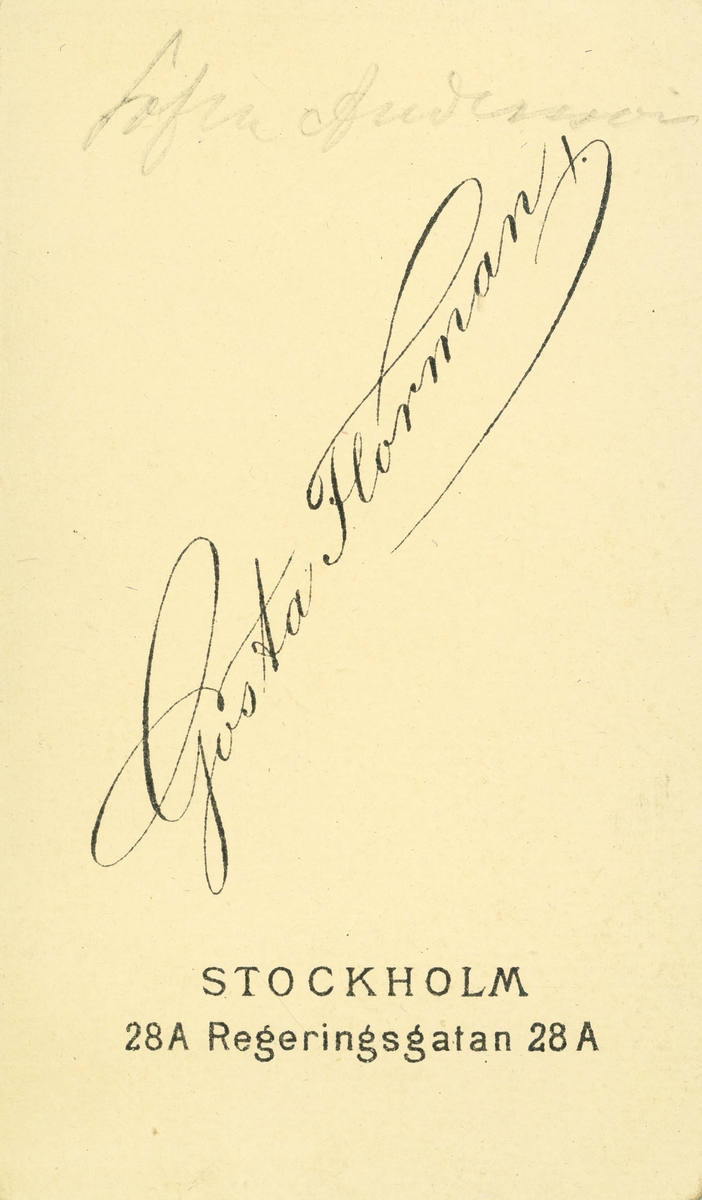 Sofia Andersson
Gösta Florman
STOCKHOLM
28A Regeringsgatan 28A